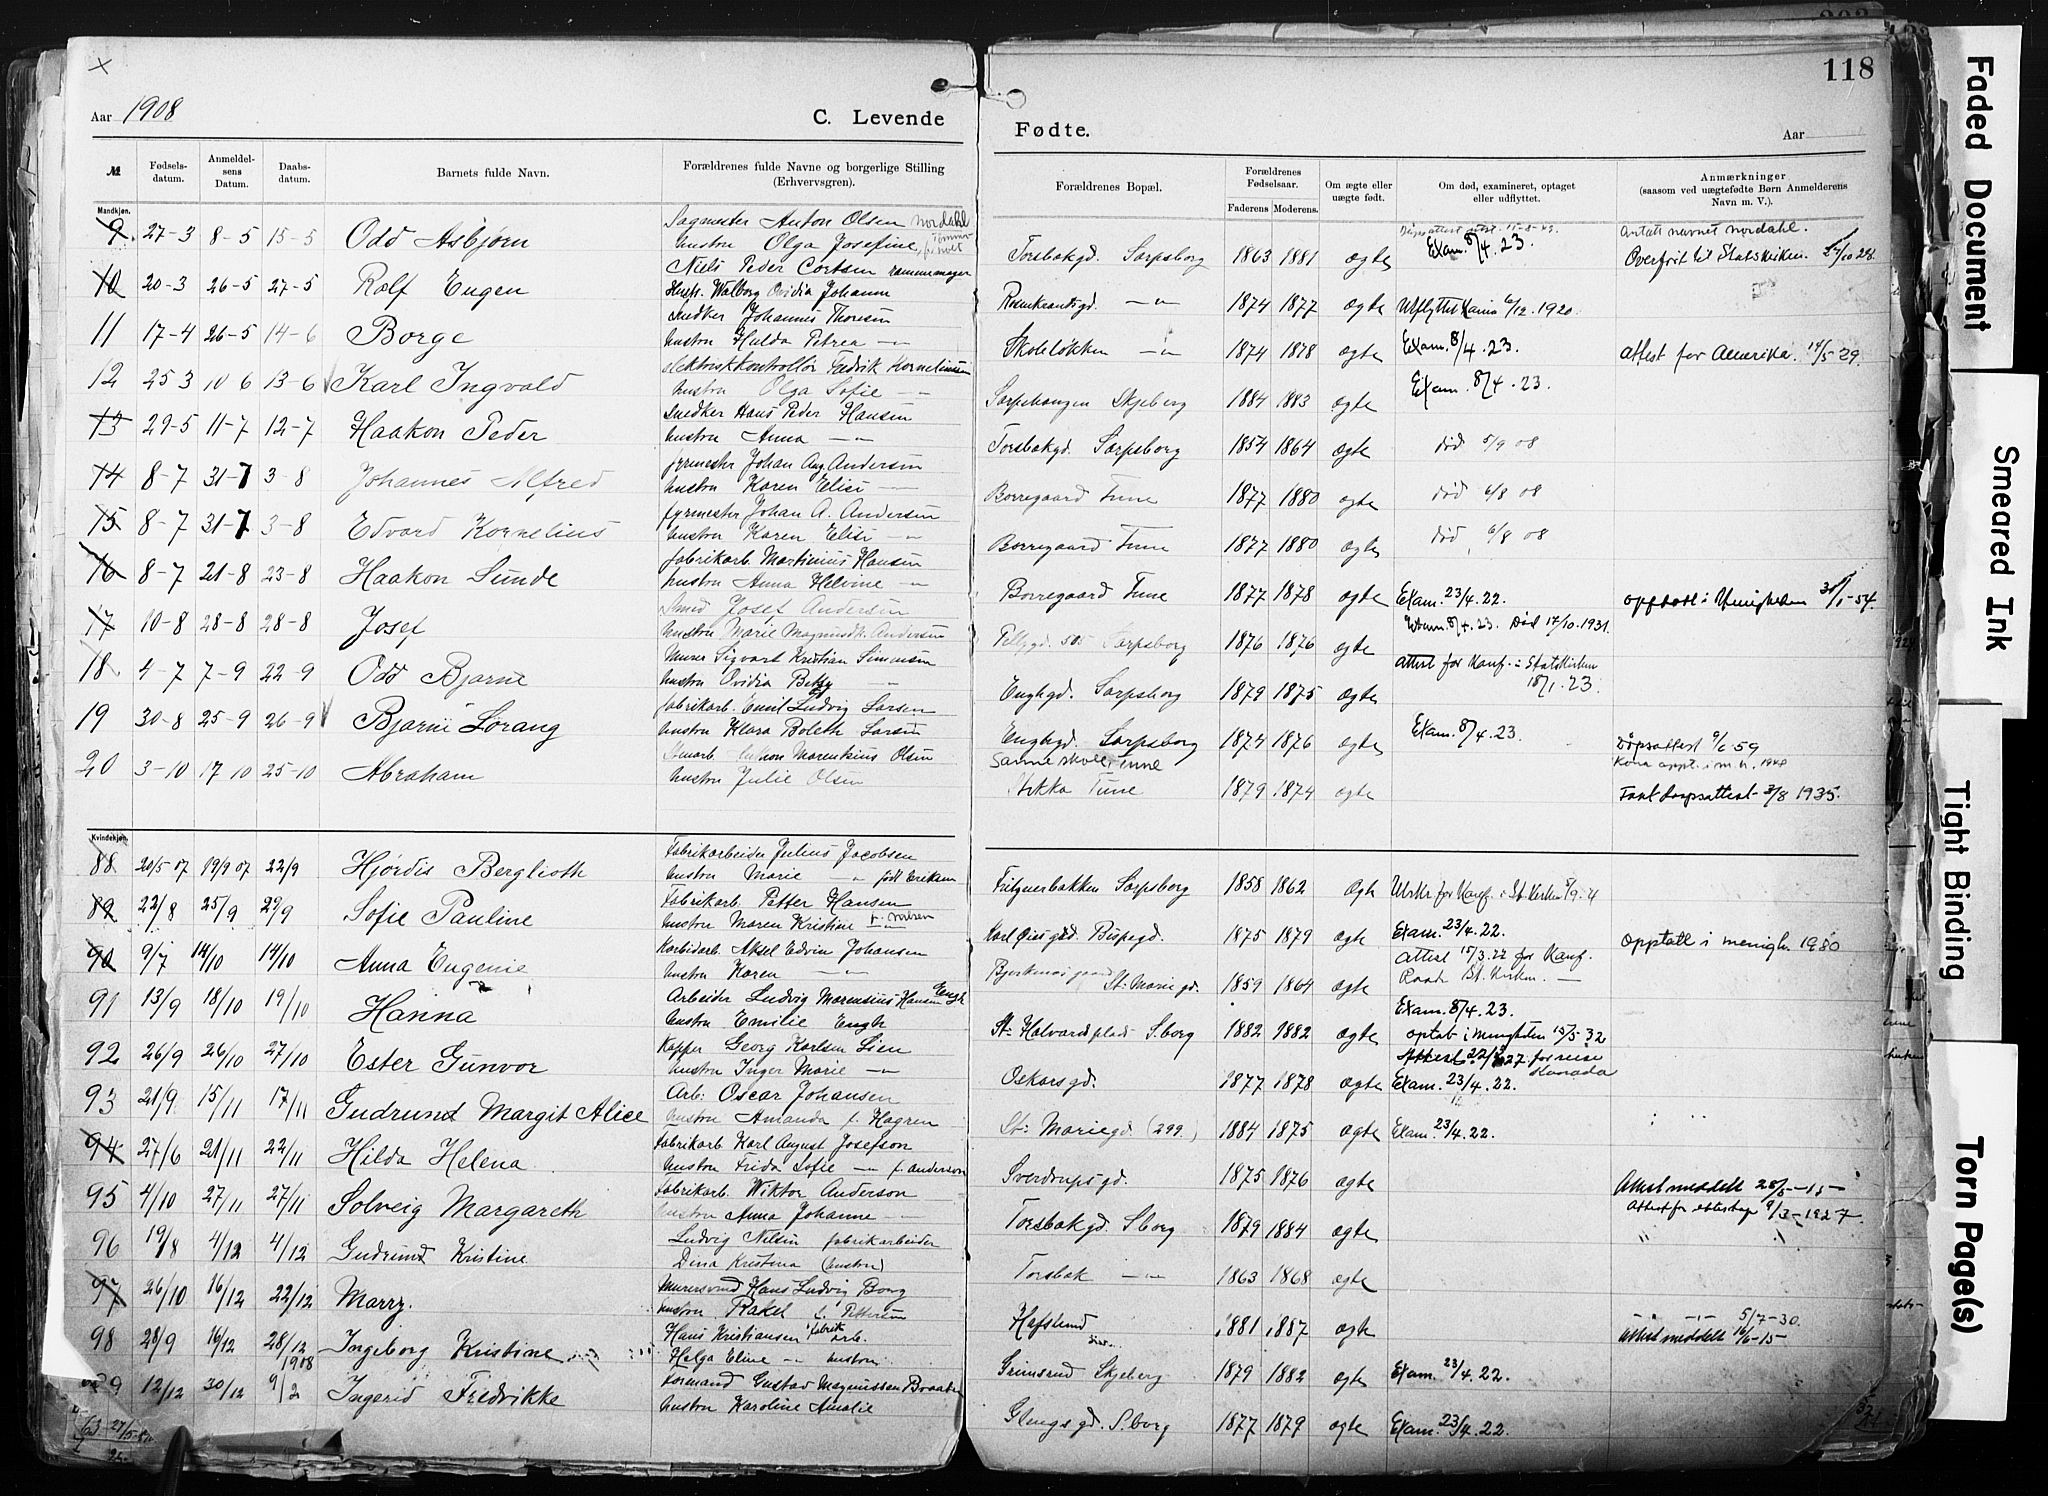 118
Aar 1908 C. Levende Fødte. Aar
№ Fødsels-datum. Anmeldel-sens Datum. Daabs-datum. Barnets fulde Navn. Forældrenes fulde Navne og borgerlige Stilling (Erhvervsgren). Forældrenes Bopæl. Forældrenes Fødselsaar. Faderens Moderens. Om ægte eller uægte født. Om død, examineret, optaget eller udflyttet. Anmærkninger (saasom ved uægtefødte Børn Anmelderens Navn m. V.).
Mandkjøn.
9 27-3 8-5 15-5 Odd Asbjørn Sagmester Anton Olsen Nordahl
hustru Olga Josefine Torsbakgd. Sarpsborg 1863 1881 ægte Exam. 8/4.23 antatt navnet Nordahl.
Overført til Statskirken.
10 20-3 26-5 27-5 Rolf Eugen Niels Peder Cortsen rammemager
Hustr. Walborg Ovidia Johanne Rosenkrantzgd. 1874 1877 ægte Utflyttet Xania 6/12.1920
11 17-4 26-5 14-6 Borge Snedker Johannes Thoresen
hustru Hulda Petrea Skoleløkken 1874 1878 ægte Exam. 8/4.23. Attest for Amerika. 14/5-29.
12 25 3 10 6 13-6 Karl Ingvald elektriskkontrollør Fredrik Kornelinssen
hustru Olga Sofie Sarpshaugen Skjeberg 1884 1883 ægte Exam. 8/4.23.
13 29-5 11-7 12-7 Haakon Peder Snedker Hans Peder Hansen
hustru Anna Torsbakgd. Sarpsborg 1854 1864 ægte død 5/9 08
14 8-7 31-7 3-8 Johannes Alfred fyrmester Johan Aug. Andersen
hustru Karen Elise Borregaard Tune 1877 1880 ægte død 6/8 08
15 8-7 31-7 3-8 Edvard Kornelius fyrmester Johan A. Andersen
hustru Karen Elise Borregaard Tune 1877 1880 ægte død 6/8 08
16 8-7 21-8 23-8 Haakon Sunde fabrikarb. Martinius Hansen
hustru Anna Helvine Borregaard Tune 1877 1878 ægte Exam. 23/4.22. opptatt i Menigheten 31/1-54.
17 10-8 28-8 28-8 Josef Smed Josef Andersen
hustru Marie Magnusdt. Andersen Pellygd. 505 Sarpsborg 1876 1876 ægte Exam. 8/4.23. Død 17/10.1931.
18 4-7 7-9 22-9 Odd Bjarne Murer Sigvart Kristian Simonsen
hustru Ovidia Betsy Enghgd. Sarpsborg 1879 1875 ægte Attest for Konf. i Statskirken 18/1.23.
19 30-8 25-9 26-9 Bjarne Lorang fabrikarb. Emil Ludvig Larsen
hustru Klara Boleth Larsen Enghgd. Sarpsborg 1874 1876 ægte Exam. 8/4.23. Dåpsattest 9/6 59
20 3-10 17 10 25-10 Abraham Marentsius Olsen
hustru Julie Olsen Sanneskole Tune
Tune 1879 1874 ægte Faat Daapsattest 3/8 1935.
Kvindekjøn.
88 20/5 07 19/9 07 22/9 Hjørdis Berglioth Fabrikarbeider Julius Jacobsen
hustru Marie født Eriksen Fritznerbakken Sarpsborg 1858 1862 ægte
89 22/8 25/9 29/9 Sofie Pauline Fabrikarb. Petter Hansen
hustru Maren Kristine f. Nilsen Karl Øiesgd. Bispegd. 1875 1879 ægte Exam. 23/4.22. Opptatt i menigh. 1980
90 9/7 14/10 14/10 Anna Eugenie Karbidarb. Aksel Edvin Johansen
hustru Karen St: Mariegd. 1859 1864 ægte Attest 15/3.22 for Konf.
91 13/9 18/10 19/10 Hanna Arbeider Ludvig Marensius Hansen Engh
hustru Emilie Engh St: Halvardsplads S.borg 1882 1882 ægte Exam. 8/4.23.
optat i Menigheten 15/5.32
92 26/9 26/10 27/10 Ester Gunvor Kopper Georg Karlsen Lien
hustru Inger Marie Oskarsgd. 1877 1878 ægte Attest for reise Kanada
Exam. 23/4.22.
93 21/9 15/11 17/11 Gudrund Margit Alice Arb: Oscar Johansen
hustru Amanda f. Hagren St: Mariegd. (299.) 1884 1875 ægte Exam. 23/4.22.
94 27/6 21/11 22/11 Hilda Helena Fabrikarb Karl August Josefson
hustru Frida Sofie f. Anderson Sverdrupsgd. 1875 1876 ægte
95 4/10 27/11 27/11 Solveig Margareth Fabrikarb. Wiktor Anderson
hustru Anna Johanne Torsbakgd. Sborg 1879 1884 ægte Attest meddelt 28/5-15
Attest for ekteskap 9/3-1927.
96 19/8 4/12 4/12 Gudrund Kristine Ludvig Nilsen fabrikarbeider
Dina Kristina (hustru) Torsbak 1863 1868 ægte
97 26/10 16/12 22/12 Marry. Murersvend Hans Ludvig Borg
hustru Rakel f. Pettersen Hafslund 1881 1887 ægte 5/7-30.
98 28/9 16/12 28/12 Ingeborg Kristine Hans Kristiansen fabrik arb.
Helga Eline hustru Grimsrud Skjeberg 1879 1882 ægte Exam. 23/4.22. Attest meddelt 16/6-15
99 12/12 30/12 1908 9/2 Ingerid Fredrikke Formand Gustav Magnussen Braaten
hustru Karoline Amalie Glengsgd. S.borg 1877 1879 ægte Exam. 23/4.22.
Faded Document
Smeared Ink
Tight Binding
Torn Page(s)